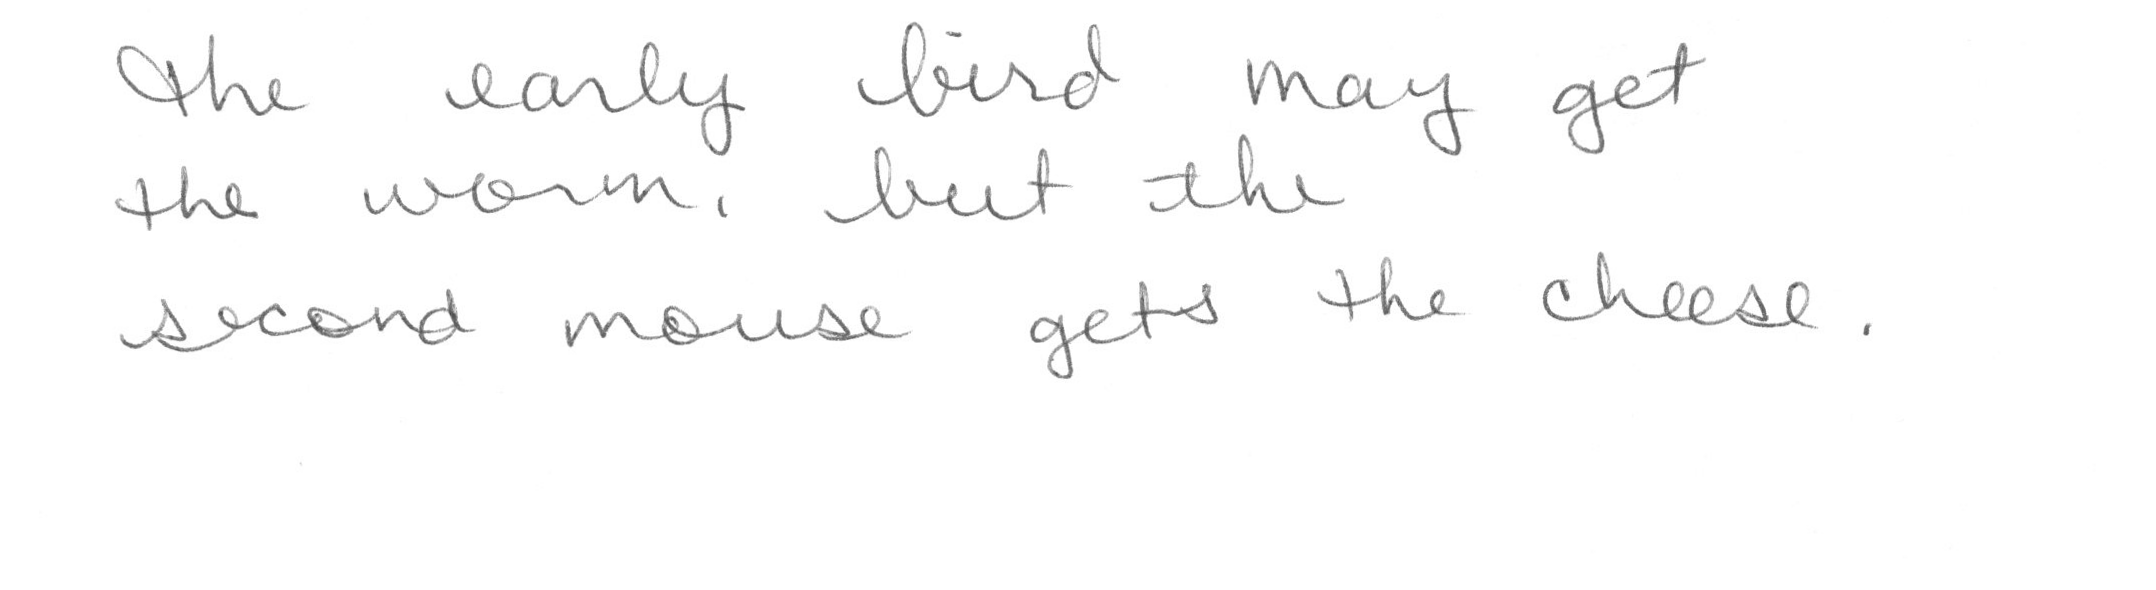 The early bird may get
the worm, but the
second mouse gets the cheese.